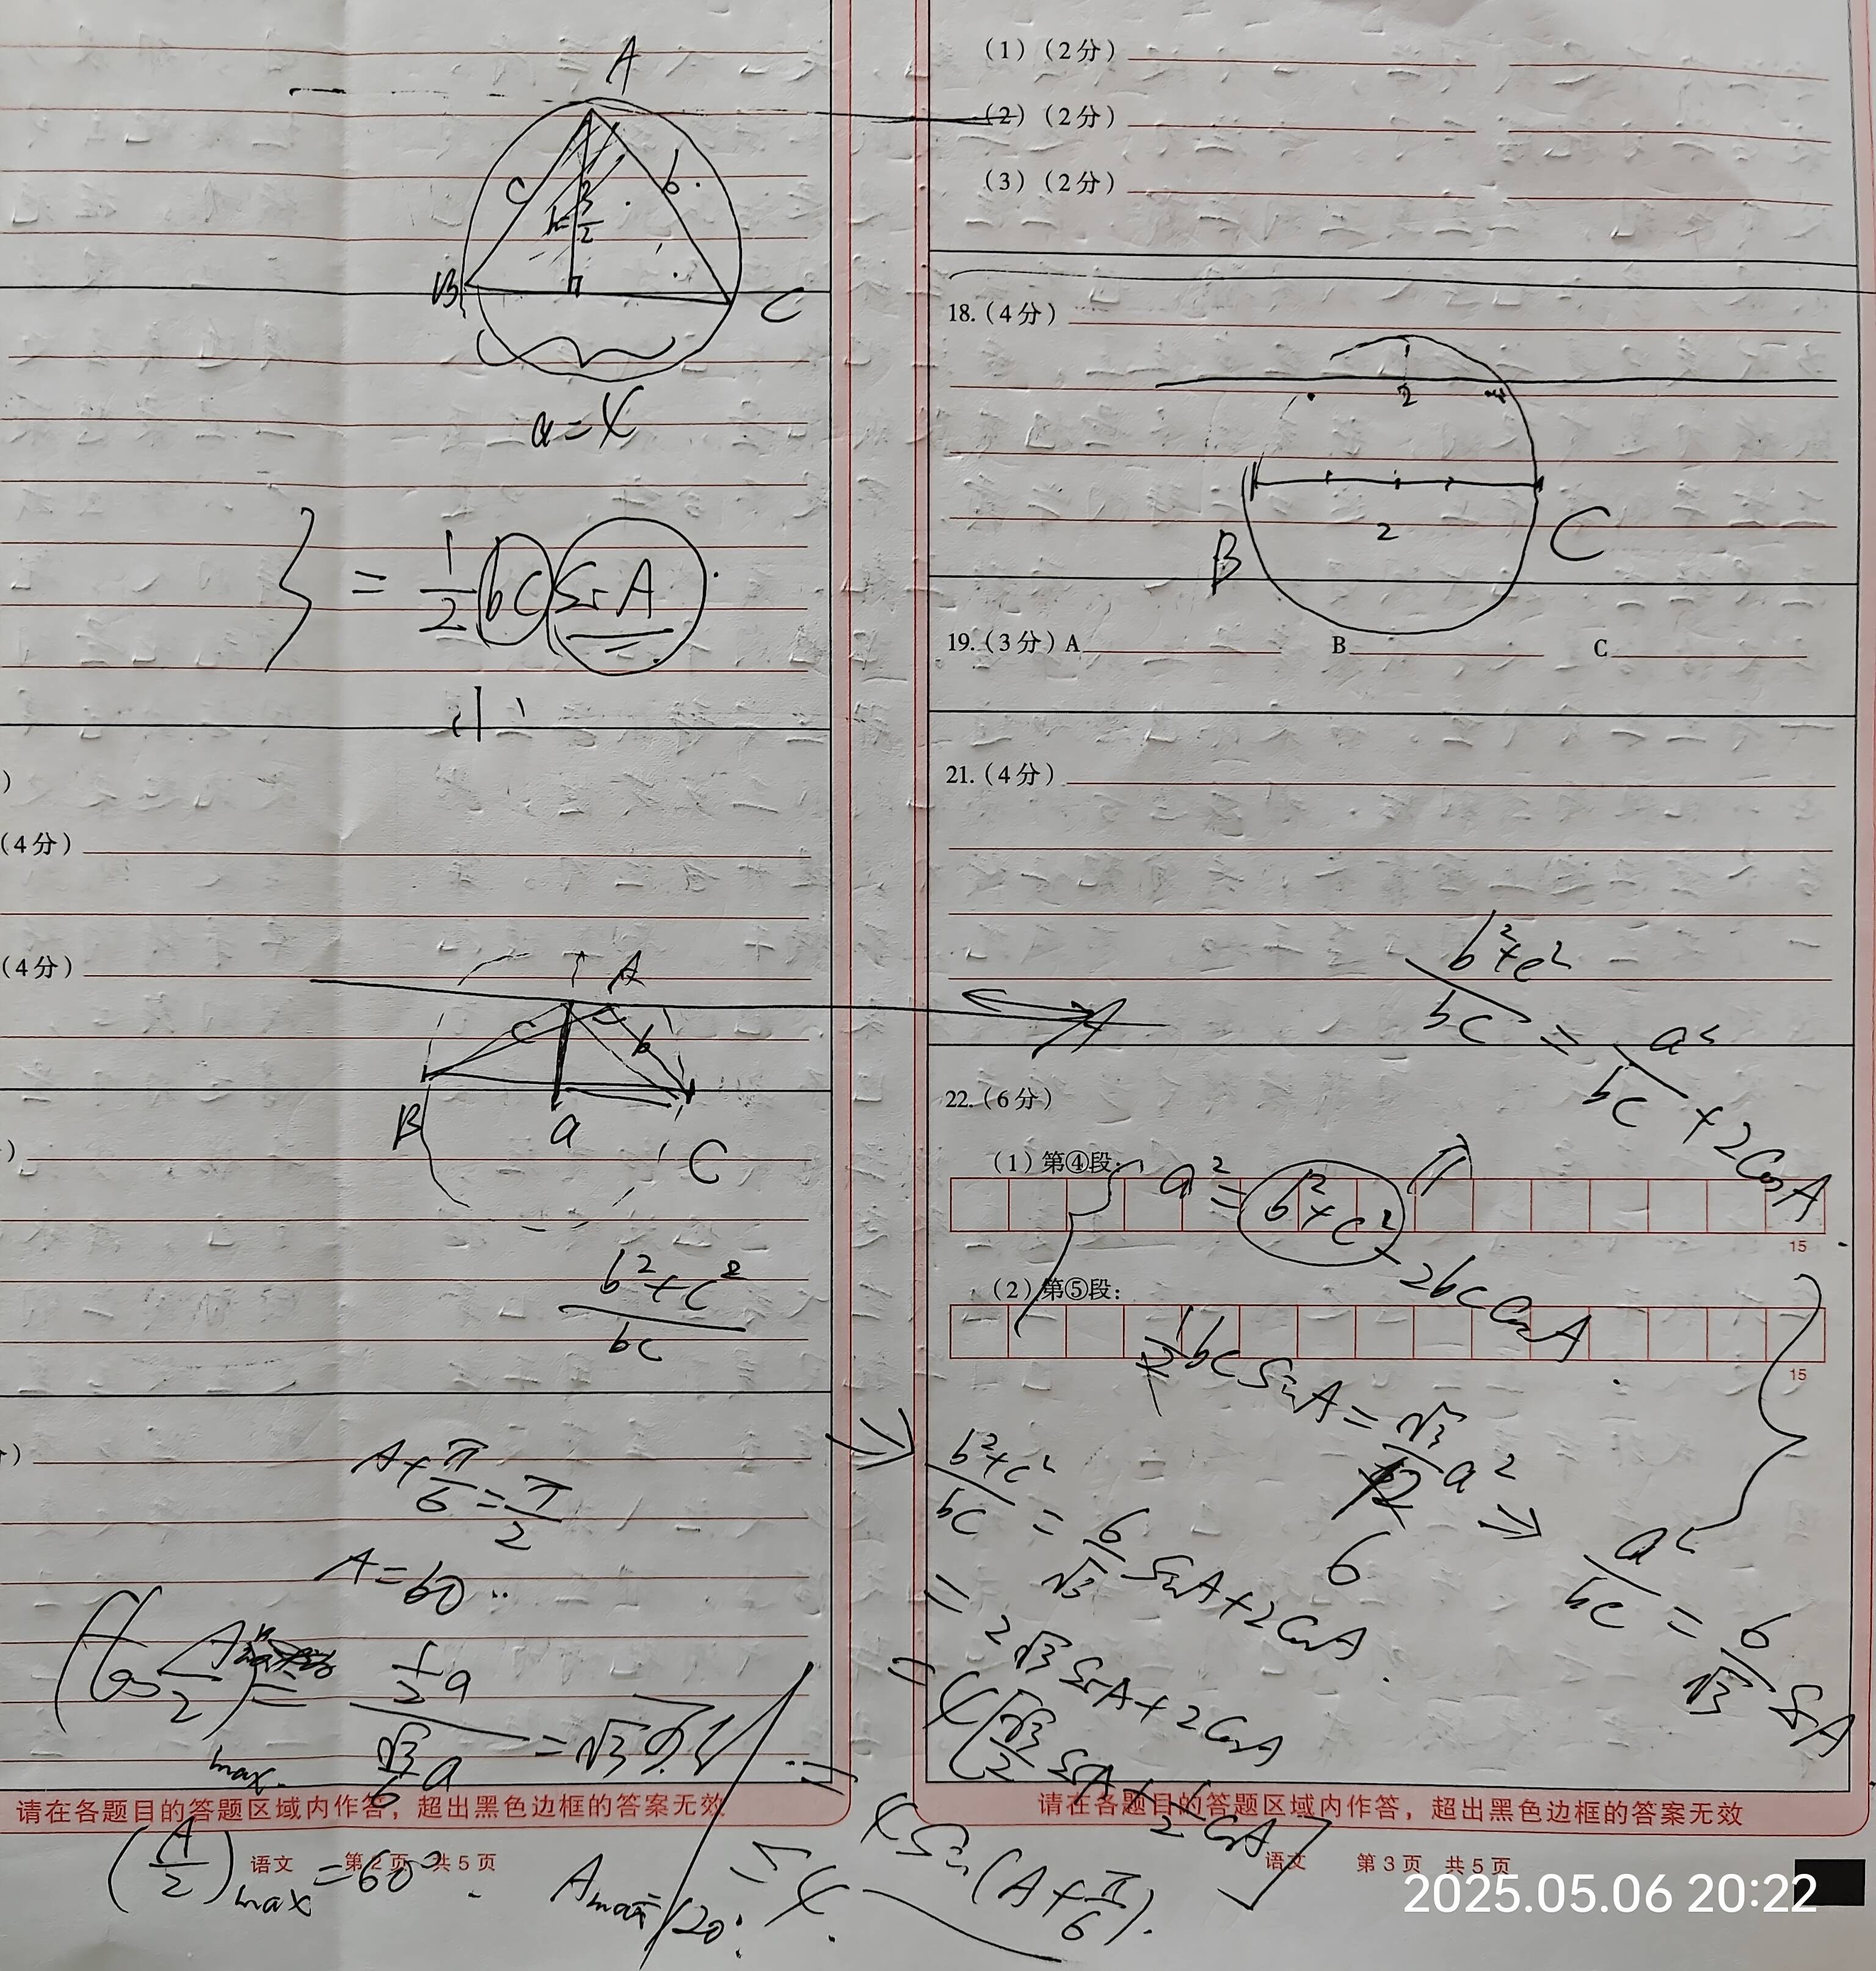 A
c
b
h=3/2
B
C
a=4
S = 1/2 bc sin A
(4分)
(4分)
A
c
b
B
a
C
b²+c²
bc
A+π/6=π/2
A=60
(cos A/2)max = (1/2 a)/(√3/6 a) = √3
(A/2)max=60°.
Amax=120°.
请在各题目的答题区域内作答，超出黑色边框的答案无效
语文 第2页 共5页
(1)(2分)
(2)(2分)
(3)(2分)
18.(4分)
2
2
B
C
19.(3分)A B C
21.(4分)
(b²+c²)/bc = a²/bc + 2cosA
A
22.(6分)
(1)第④段:
a²=b²+c²-2bc cosA
15
(2)第⑤段:
15
1/2 bc sinA = √3/12 a²
6
⇒ a²/bc = 6/√3 sinA
⇒ (b²+c²)/bc = 6/√3 sinA+2cosA
= 2√3 sinA+2cosA
= 4[√3/2 sinA+1/2 cosA]
= 4sin(A+π/6).
≤4.
请在各题目的答题区域内作答，超出黑色边框的答案无效
语文 第3页 共5页
2025.05.06 20:22